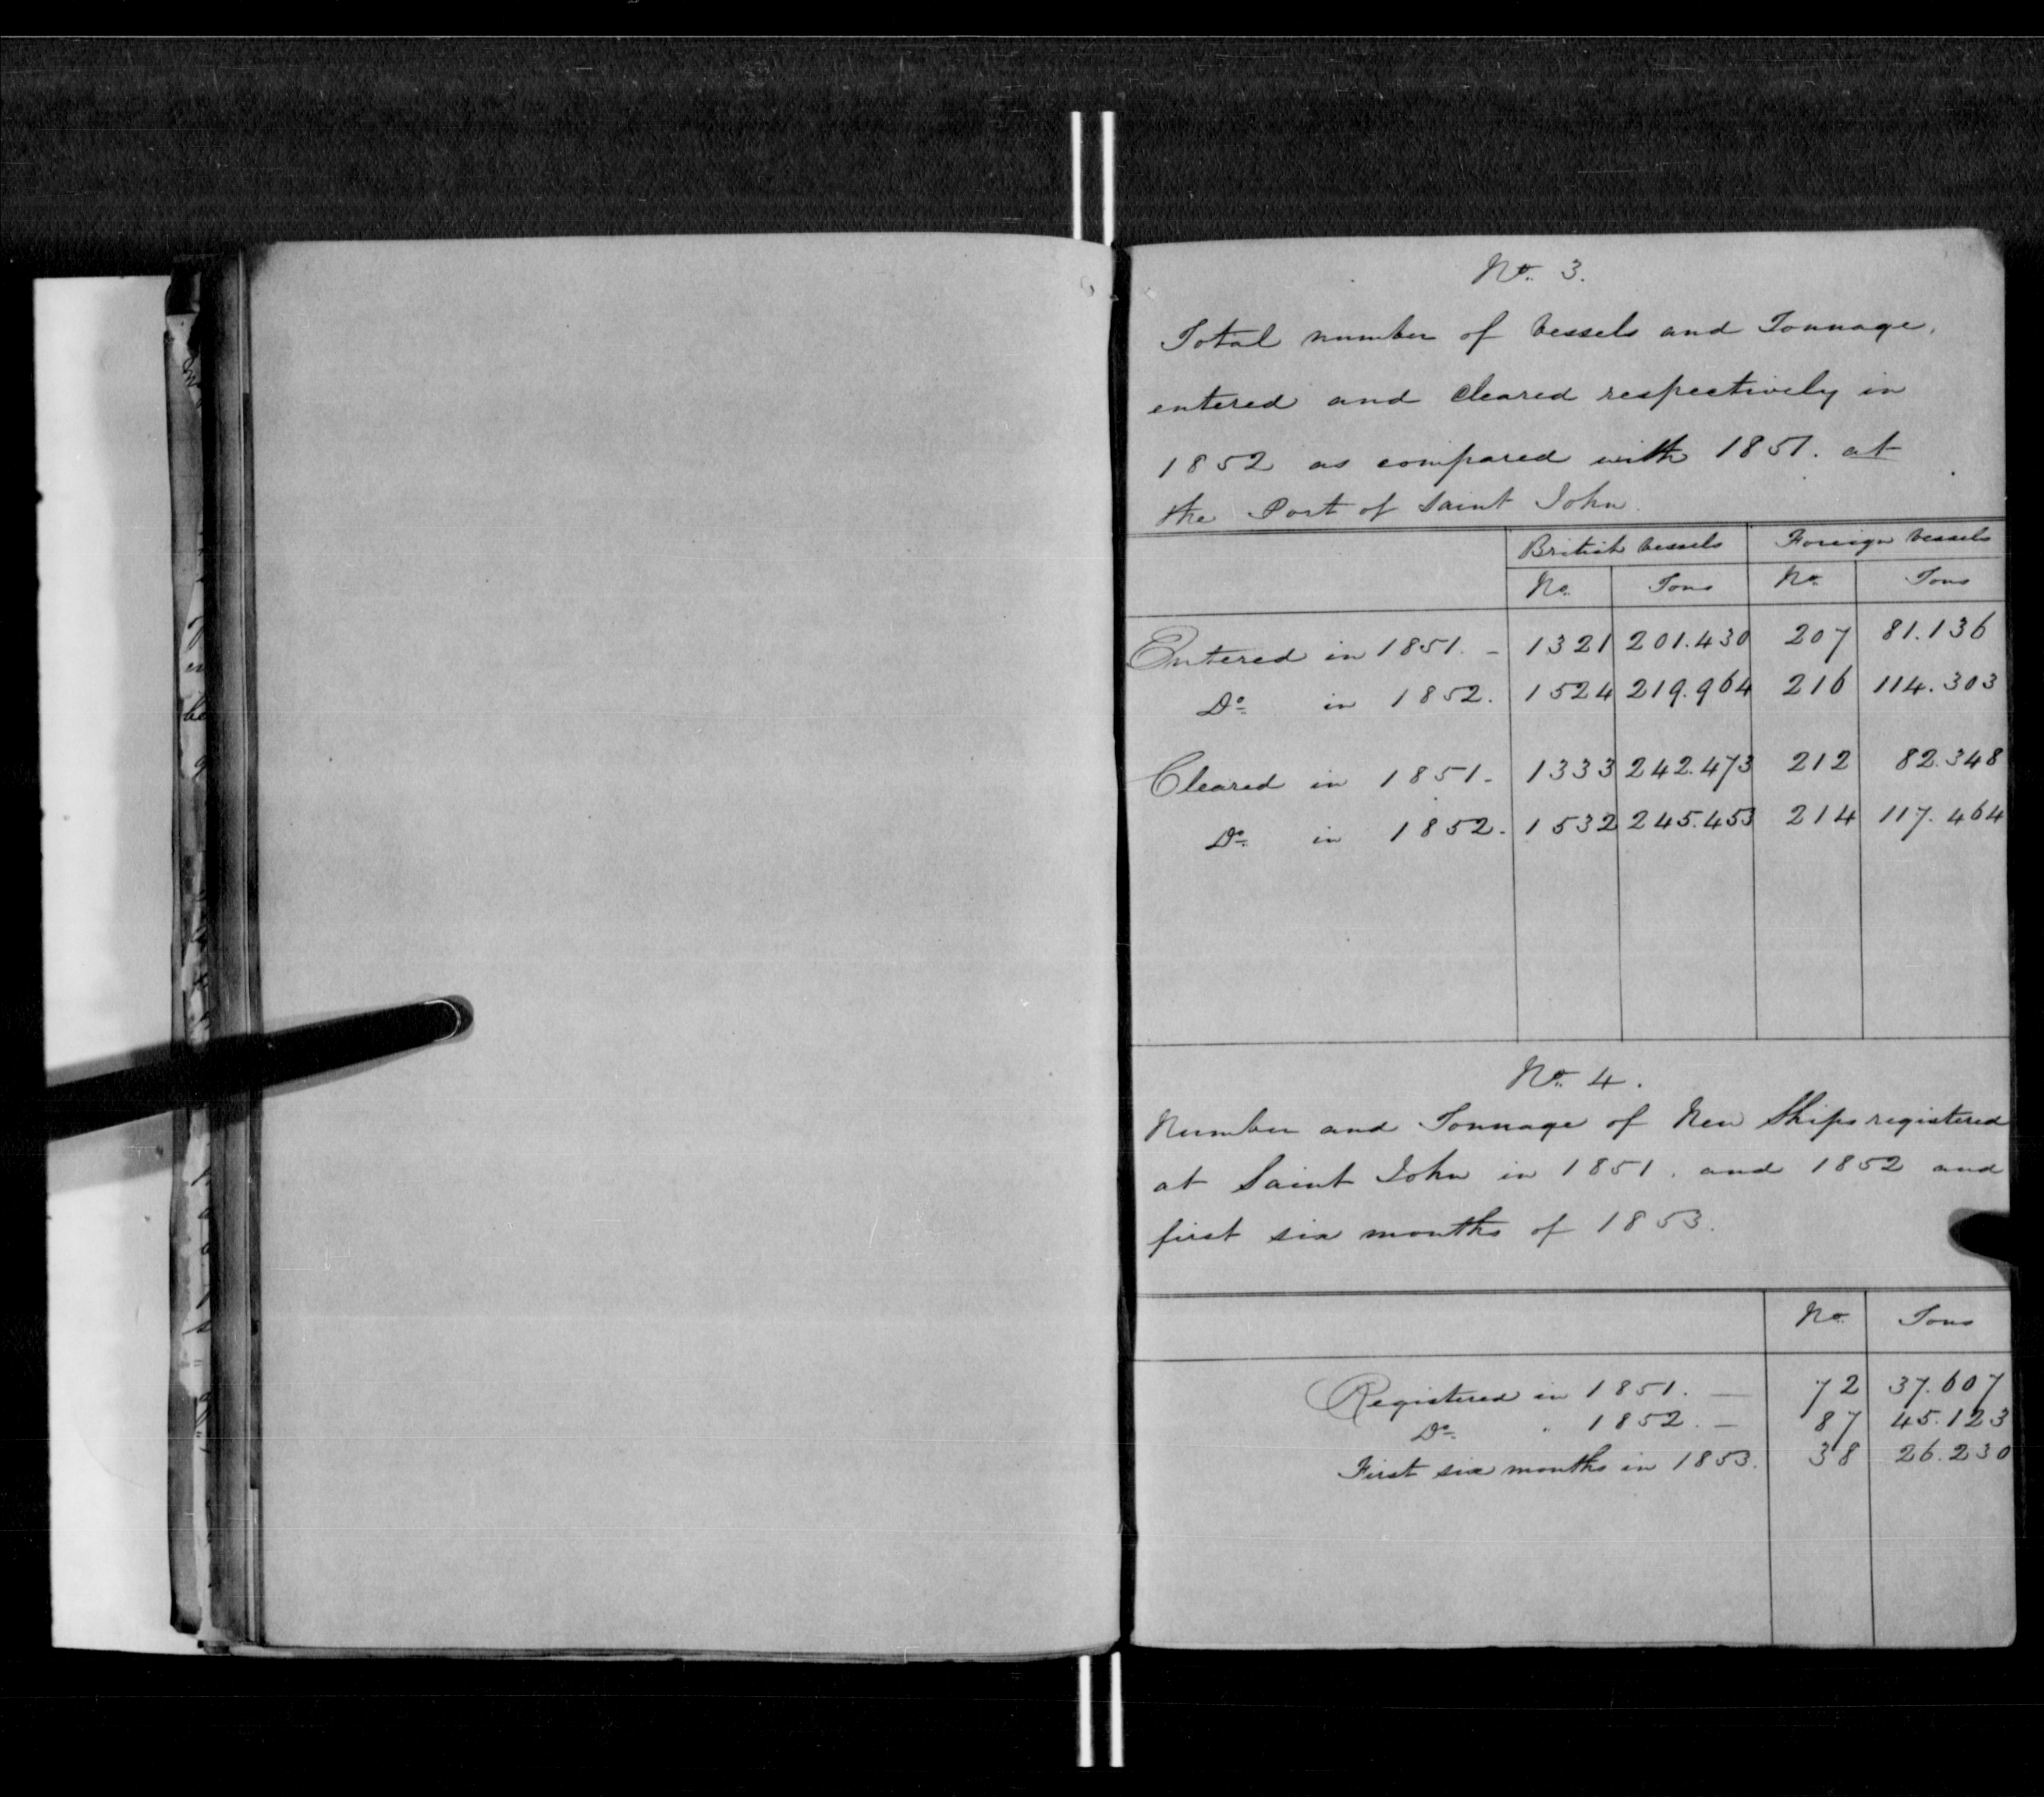 No. 3.
Total number of Vessels and Tonnage,
entered and Cleared respectively in
1852 as compared with 1851. at
the Port of Saint John.
British Vessels Foreign Vessels
No. Tons No. Tons
Entered in 1851. - 1321 201.430 207 81.136
Do. in 1852. 1524 219.964 216 114.303
Cleared in 1851 - 1333 242.473 212 82.348
Do. in 1852. 1532 245.453 214 117.464
No. 4.
Number and Tonnage of New Ships registered
at Saint John in 1851. and 1852 and
first six months of 1853.
No. Tons
Registered in 1851. — 72 37.607
Do. " 1852. — 87 45.123
First six months in 1853. 38 26.230